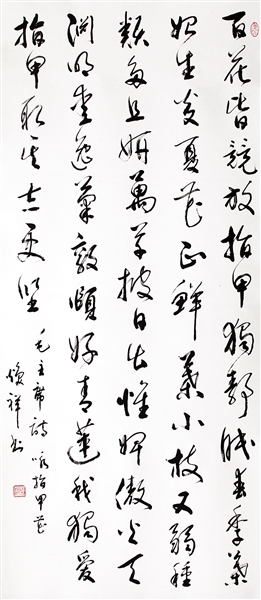 百花皆競放指甲獨靜眠春季葉
始生炎夏花正鮮葉小枝又弱種
類多且妍萬草披日出惟婢傲火天
淵明愛逸菊敦頤好青蓮我獨愛
指甲取其志更堅
毛主席詩咏指甲花
祥书